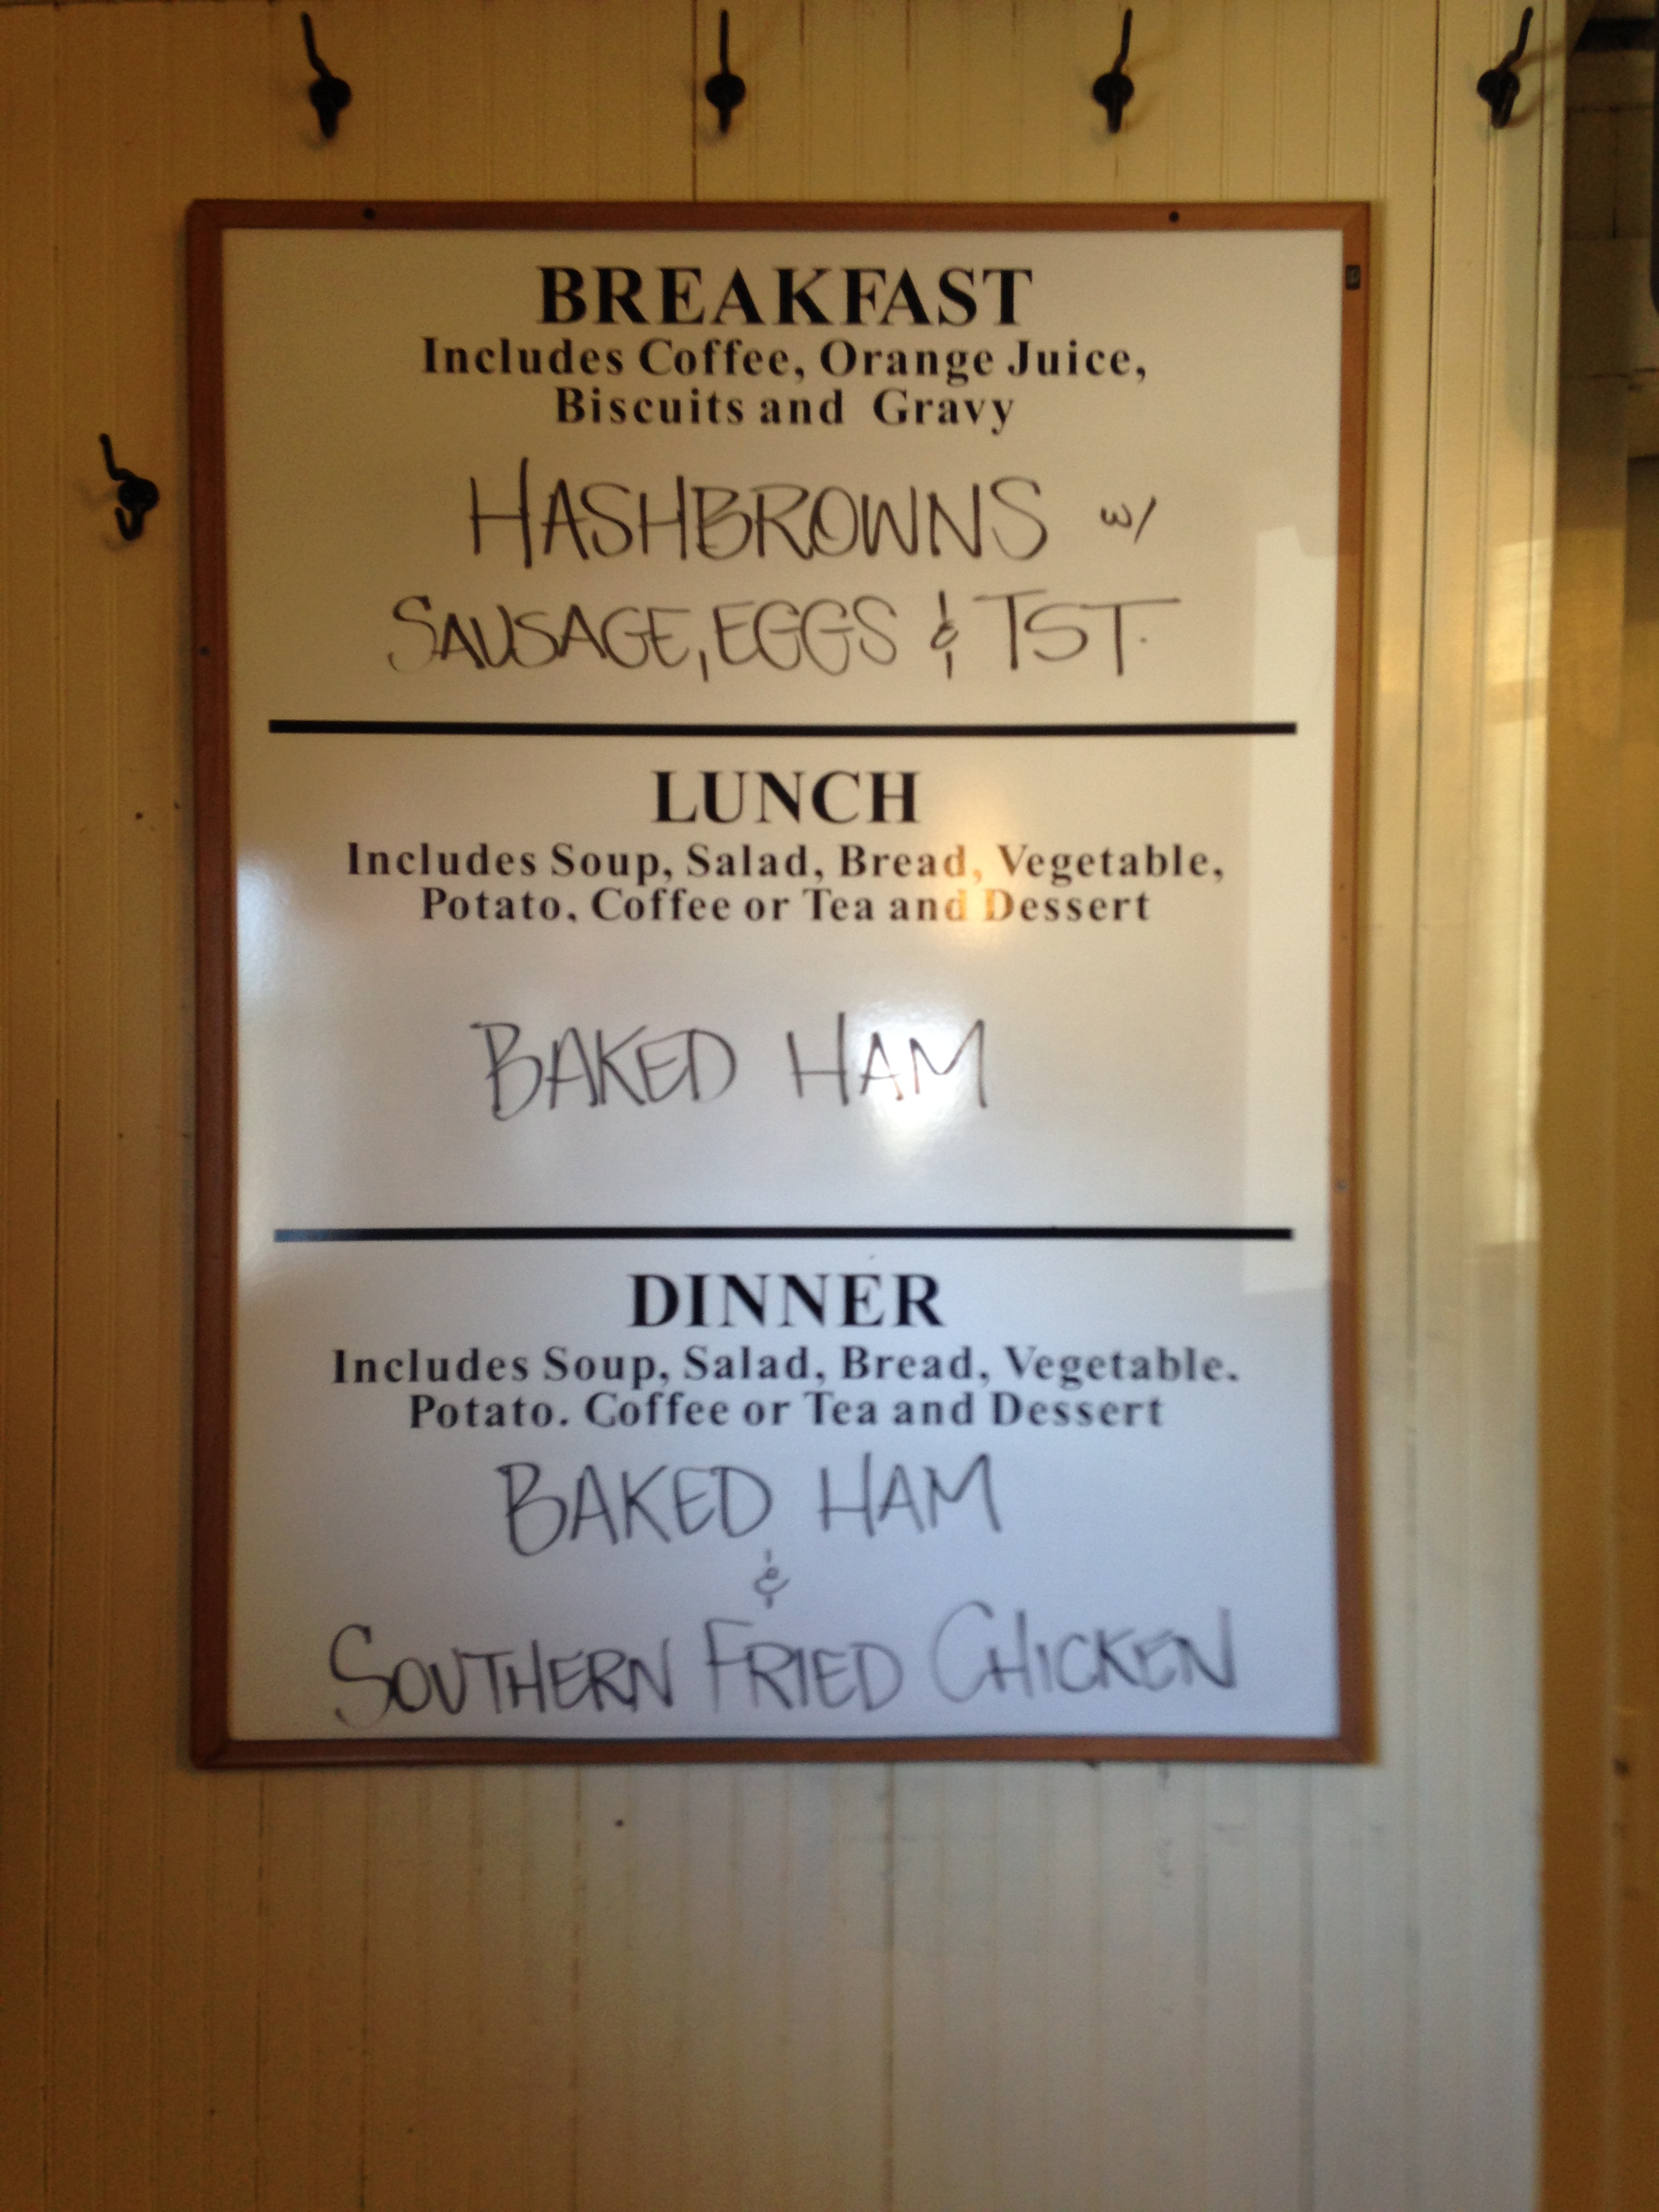 BREAKFAST
Includes Coffee, Orange Juice,
Biscuits and Gravy
HASHBROWNS w/
SAUSAGE, EGGS & TST.
LUNCH
Includes Soup, Salad, Bread, Vegetable,
Potato, Coffee or Tea and Dessert
BAKED HAM
DINNER
Includes Soup, Salad, Bread, Vegetable.
Potato. Coffee or Tea and Dessert
BAKED HAM
&
SOUTHERN FRIED CHICKEN